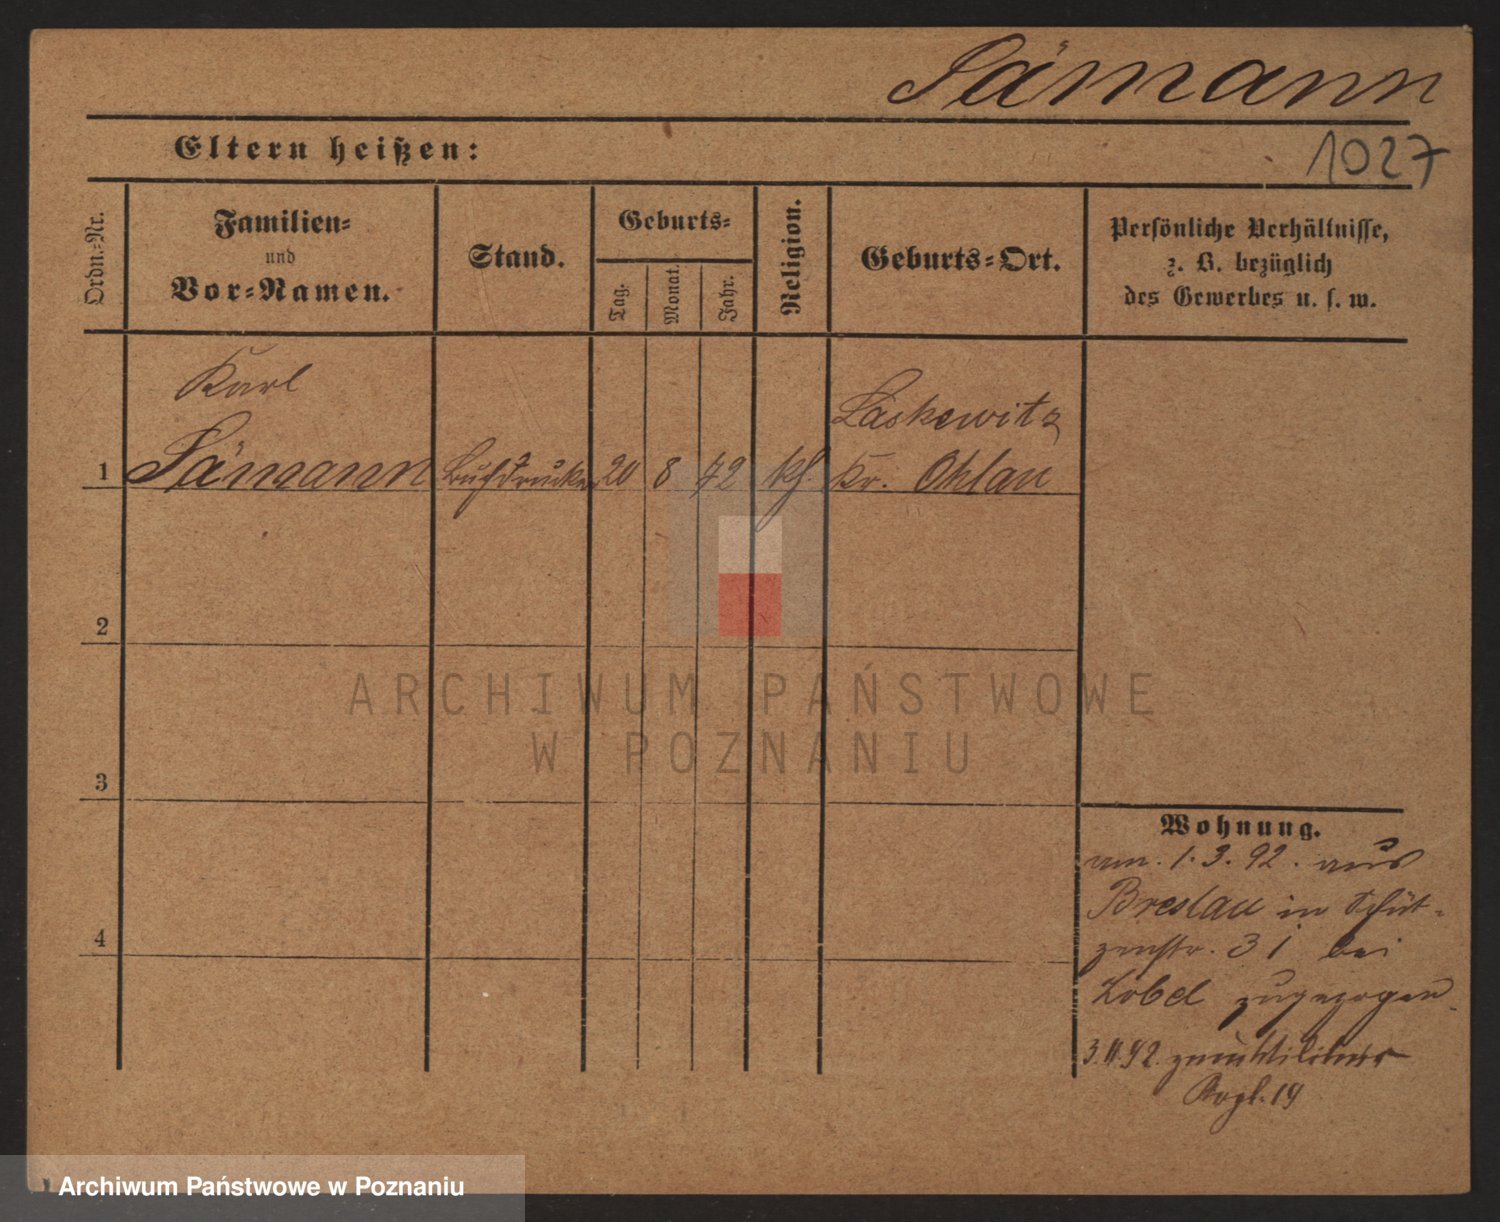 Sämann
1027
Eltern heißen:
Ordn.=Nr.
Familien=
und
Vor=Namen.
Stand.
Geburts=
Tag.
Monat.
Jahr.
Religion.
Geburts=Ort.
Persönliche Verhältnisse,
z. B. bezüglich
des Gewerbes u. s. w.
Karl
Laskewitz
1 Sämann 20 8 72 kth. Kr. Ohlau
2
3
4
Wohnung.
am. 1.3.92. aus
Breslau in Schüt-
zenstr. 31 bei
Lobel zugezogen
3.11.92. zum Militär
ARCHIWUM PAŃSTWOWE
W POZNANIU
Archiwum Państwowe w Poznaniu